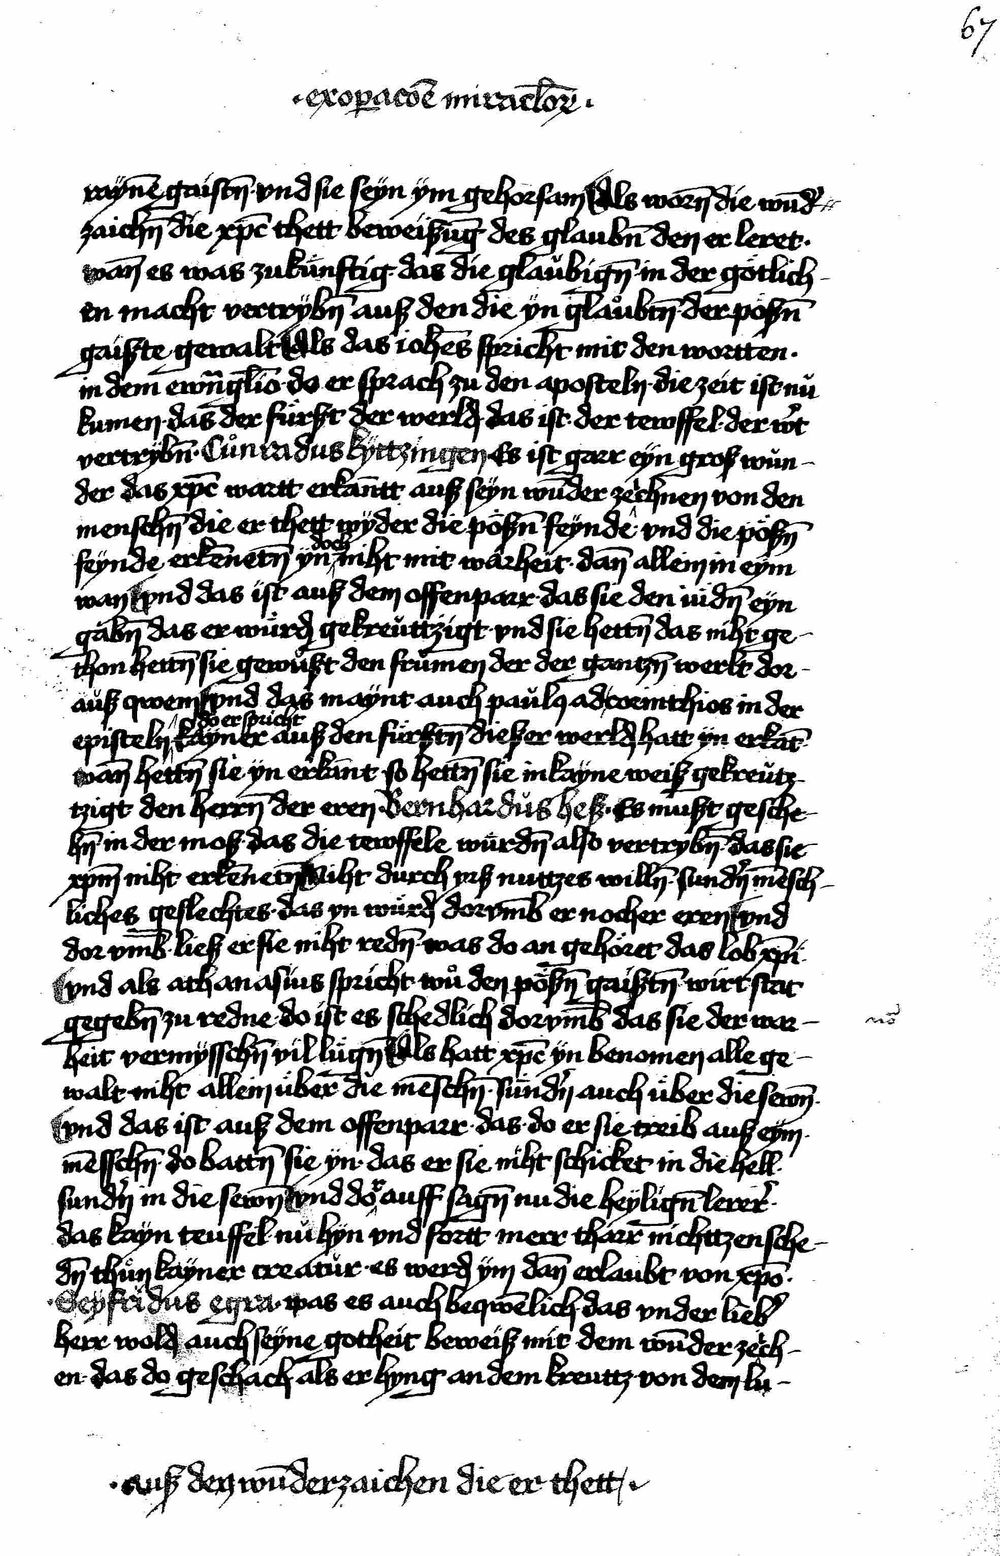 67
·ex op̲acōe miraclōr̄·
raynē gaistn̄· vnd sie seyn ym gehorsam Als worn̄ die wūd̉⸗
zaichn̄ die xp̄c thett beweiszūg· des glaubn̄ den er leret·
wan̄ es was zukünftig· das die glaubign̄ in der götlich-
en macht vertrybn̄ ausz den die yn glaubtn̄ der poszn̄
gaiszte gewalt Als das ioh̄es spricht mit den wortten·
in dem ewn̄glio· do er sprach zu den aposteln· die zeit ist nu
kumen· das der fürszt der werld· das ist· der tewffel· der w̉t
vertrybn̄· Cůnradus kyttzingen Es ist garr eyn gros wun-
der das xp̄c wartt erkan̄tt ausz seyn wūder zechnen von den
menschn̄ die er thett wyder die pöszn̄ feynde vnd die pöszn̄
feynde erkēnetn̄ yn doch niht mit warheit· dan̄ allein in eym
wan vnd das ist ausz dem offenparr· das sie den iüdn̄ eyn
gabn̄ das er würd gekreuttzigt· vnd sie hettn̄ das niht ge-
thon hettn̄ sie gewuszt den frumen der der gantzn̄ werlt dor-
ausz qwem vnd das maynt auch paulꝯ ad corinthios in der
episteln do er spricht kayner ausz den fürsztn̄ dieszer werld hatt yn erkāt·
wan̄ hettn̄ sie yn erkānt· so hettn̄ sie in kayne weisz gekreutz-
tzigt den herrn̄ der eren· Bernhardus hesz· Es muszt gesche-
hn̄ in der mosz· das die tewffele würdn̄ also vertrybn̄· das sie
xpm̄ niht erkēnetn̄ Niht durch yrsz nuttzes willn̄· sundn̉ mēsch-
liches geslechtes· das yn würd dorvm̄b er nocher eren vnd
dor vm̄b· liesz er sie niht redn̄· was do an gehöret das lob xp̄i·
vnd als athanasius spricht· wů den pöszn̄ gaisztn̄ wirt stat
gegebn̄ zu redne· do ist es schedlich dorvm̄b das sie der war-
heit vermysschn̄ vil lügn̄ Als hatt xp̄c yn benomen alle ge-
walt· niht allein über die mēschn̄· sūndn̉ auch über die sewn̄·
vnd das ist ausz dem offenparr· das· do er sie treib ausz eym·
mēsschn̄ do battn̄ sie yn· das er sie niht schicket in die hell·
sundn̉ in die sewn̄ vnd dor auff sagn̄ nu die heylign̄ lerer̉·
das kayn teuffel· nu hyn vnd fortt merr tharr nichttzen sche-
dn̄ thun kayner creatur· es werd ym dan̄ erlaubt von xp̄o·
·Seyfridus egra· was es auch beqwēlich· das vnder lieb̉
herr wold auch seyne gotheit beweisz mit dem wūder zech-
en· das do geschach als er hyng an dem kreuttz von dem lu-
·ausz den wūderzaichen die er thett·